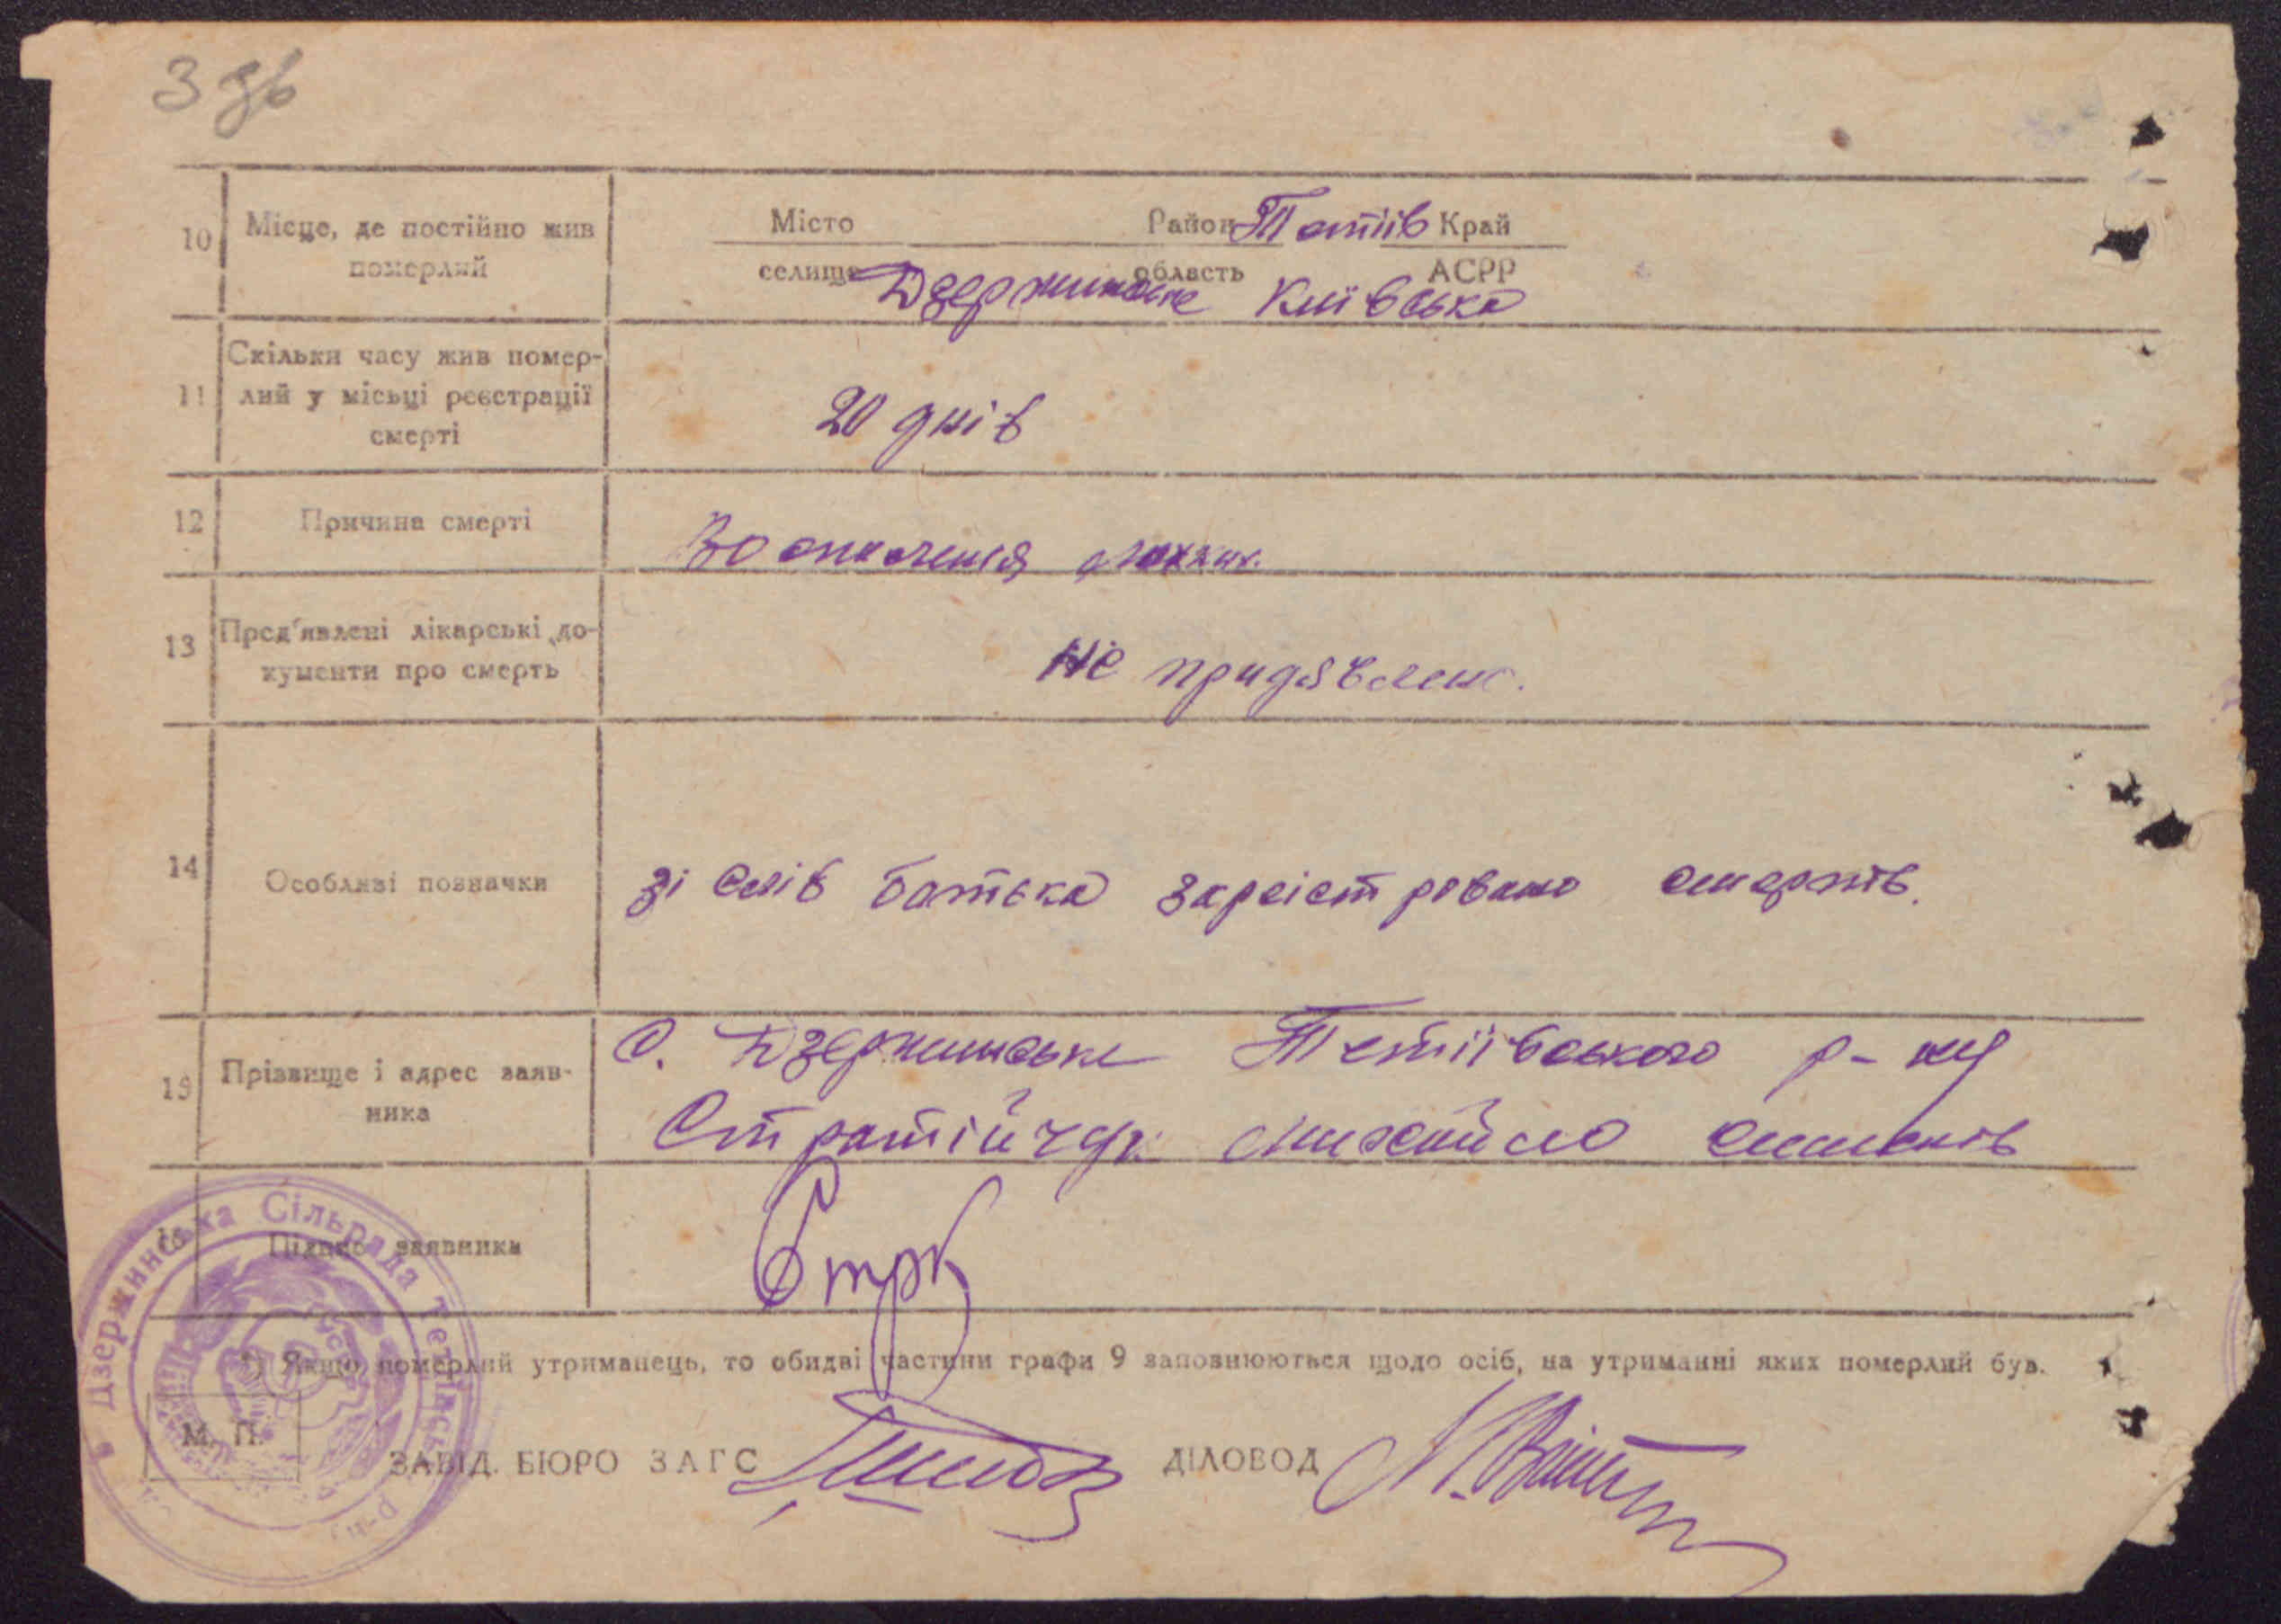 З зв
10 Місце, де постійно жив
померлий
Місто Район Тетіїв Край
селище Дзержинське область Київська АСРР
11 Скільки часу жив помер-
лий у місьці реєстрації
смерті
20 днів
12 Причина смерті
Воспаления легких.
13 Пред'явлені лікарські до-
кументи про смерть
не придявлено.
14 Особливі позначки
зі слів батька зареістровано смерть.
15 Прізвище і адрес заяв-
ника
С. Дзержинське Тетіївського р-ну
Стратійчук Михайло
16 Підпис заявника
Стр
*) Якщо померлий утриманець, то обидві частини графи 9 заповнюються щодо осіб, на утриманні яких померлий був.
М. П.
ЗАВІД. БЮРО ЗАГС ДІЛОВОД
Дзержинська Сільрада Тетіївськ р-ну